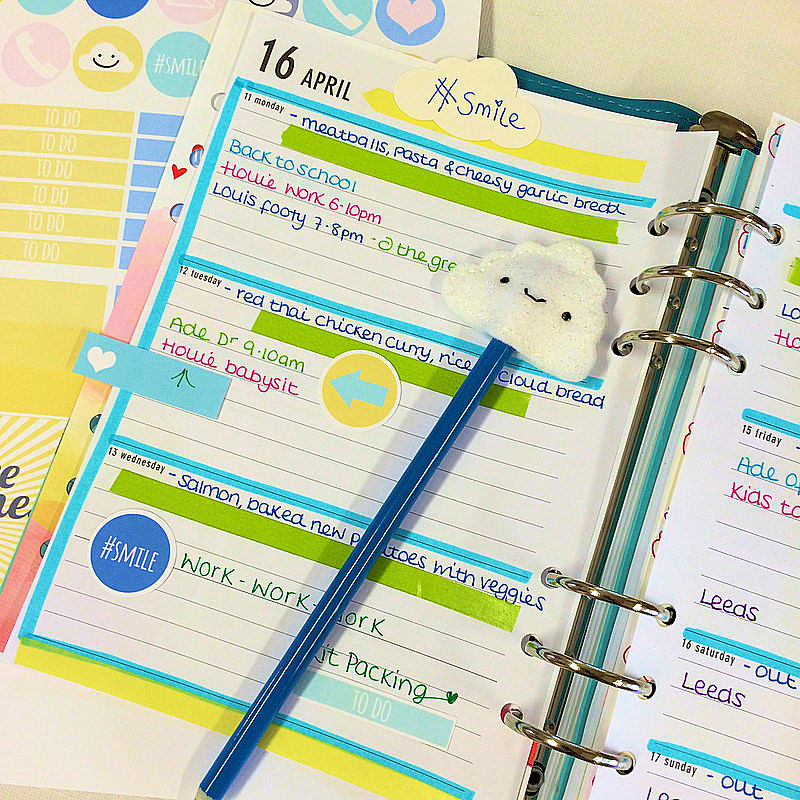 #SMILE
TO DO
TO DO
TO DO
TO DO
TO DO
TO DO
16 APRIL
#Smile
11 monday - meatballs, pasta & cheesy garlic bread
Back to school
Howie work 6-10pm
Louis footy 7-8pm - @ the
12 tuesday - red thai chicken curry, rice cloud bread
Ade Dr 9.10am
Howie babysit
13 wednesday - salmon, baked new potatoes with veggies
#SMILE
WORK - WORK - WORK
Packing
TO DO
15 friday
Ade
Kids to
Leeds
16 saturday - out
Leeds
17 sunday - out